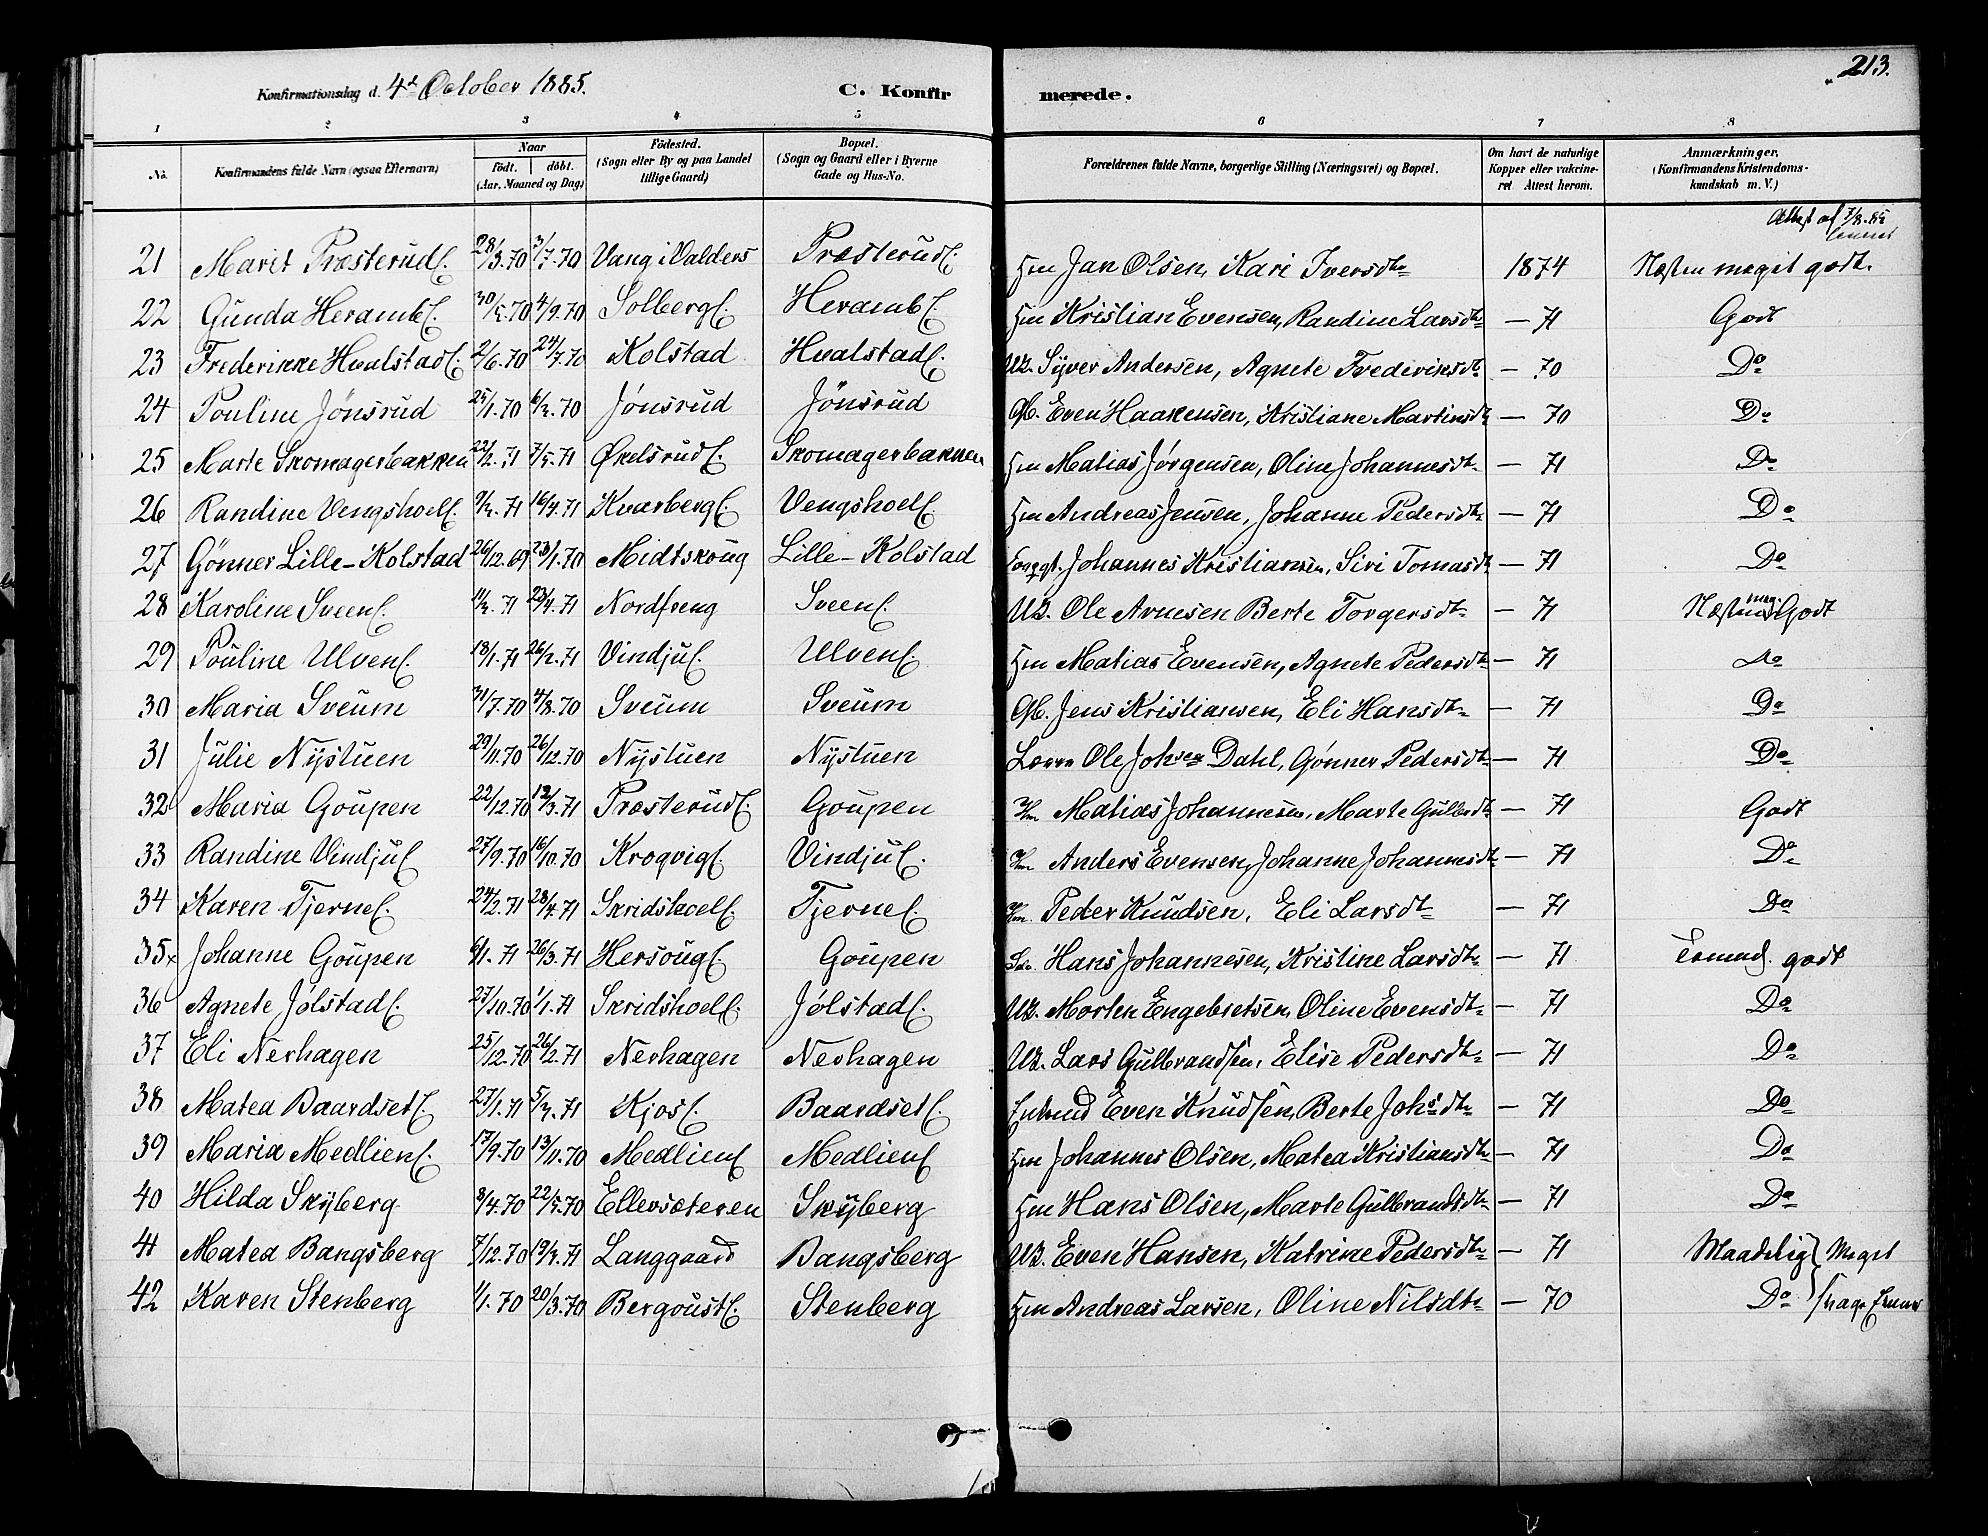 Konfirmationsdag d. 4de October 1885. C. Konfirmerede. 213.
1 2 3 4 5 6 7 8
No. Konfirmandens fulde Navn (ogsaa Efternavn) Naar födt. döbt. (Aar, Maaned og Dag) Födested. (Sogn eller By og paa Landet tillige Gaard) Bopæl. (Sogn og Gaard eller i Byerne Gade og Hus-No. Forældrenes fulde Navne, borgerlige Stilling (Næringsvei) og Bopæl. Om havt de naturlige Kopper eller vakcineret Attest herom. Anmærkninger. (Konfirmandens Kristendomskundskab m. V.)
Attest af 7/8.85
21 Marit PræsterudE. 28/3.70 3/7.70 Vang i Valders PræsterudE. Hm Jan Olsen, Kari Iversdtr 1874 Næsten meget godt.
22 Gunda HerambE. 30/5.70 4/9.70 SolbergE. HerambE. Hm Kristian Evensen, Randine Larsdtr — 71 Godt
23 Frederikke HvalstadE. 2/6.70 24/7.70 Kolstad HvalstadE. UZ. Syver Andersen, Agnete Frederiksdtr — 70 Do
24 Pouline Jönsrud 25/1.70 6/3.70 Jönsrud Jönsrud Gb. Even Haakensen, Kristiane Martinsdtr — 70 Do
25 Marte Skomagerbakken 22/2.71 7/5.71 ØkelsrudE. Skomagerbakken Hm Matias Jörgensen, Oline Johannesdtr — 71 Do
26 Randine VengshoelE. 9/3.71 16/4.71 KvarbergE. VengshoelE. Hm Andreas Jensen, Johanne Pedersdtr — 71 Do
27 Gönner Lille-Kolstad 26/12.69 23/1.70 Midtskoug Lille-Kolstad Johannes Kristiansen, Siri Tomasdtr — 71 Do
28 Karoline SveenE. 11/3.71 23/4.71 Nordfreng SveenE. UZ. Ole Arnesen Berte Torgersdtr — 71 Næsten meg. Godt
29 Pouline UlvenE. 18/1.71 26/2.71 VindjuE. UlvenE. Hm Matias Evensen, Agnete Pedersdtr — 71 Do
30 Maria Sveum 31/7.70 4/8.70 Sveum Sveum Gb. Jens Kristiansen, Eli Hansdtr — 71 Do
31 Julie Nystuen 29/11.70 26/12.70 Nystuen Nystuen Lærer Ole Johsen Dahl, Gönner Pedersdtr — 71 Do
32 Maria Goupen 22/12.70 12/3.71 PræsterudE. Goupen Hm Matias Johannesen, Marte Gulbrdtr — 71 Godt
33 Randine VindjuE. 27/9.70 16/10.70 KrogvigE. VindjuE. Hm Anders Evensen, Johanne Johannesdtr — 71 Do
34 Karen TjerneE. 24/2.71 28/4.71 SkridshoelE. TjerneE. Hm Peder Knudsen, Eli Larsdtr — 71 Do
35x Johanne Goupen 6/1.71 26/3.71 HersougE. Goupen Hans Johannesen, Kristine Larsdtr — 71 Temmel. godt
36 Agnete JölstadE. 27/10.70 1/1.71 SkridshoelE. JölstadE. UZ. Morten Engebretsen, Oline Evensdtr — 71 Do
37 Eli Nerhagen 25/12.70 26/2.71 Nerhagen Nerhagen UZ. Lars Gulbrandsen, Elise Pedersdtr — 71 Do
38 Matea BaardsetE. 27/1.71 5/3.71 KjosE. BaardsetE. Even Knudsen, Berte Johsdtr — 71 Do
39 Maria MedlienE. 17/9.70 13/11.70 MedlienE MedlienE Hm Johannes Olsen, Matea Kristiansdtr — 71 Do
40 Hilda Skyberg 3/4.70 22/5.70 Ellevsæteren Skyberg Hm Hans Olsen, Marte Gulbrandsdtr — 71 Do
41 Matea Bangsberg 7/12.70 19/3.71 Langgaard Bangsberg UZ. Even Hansen, Katrine Pedersdtr — 71 Maadelig } Meget
42 Karen Stenberg 1/1.70 20/3.70 BergoustE. Stenberg Hm Andreas Larsen, Oline Nilsdtr — 70 Do } svage